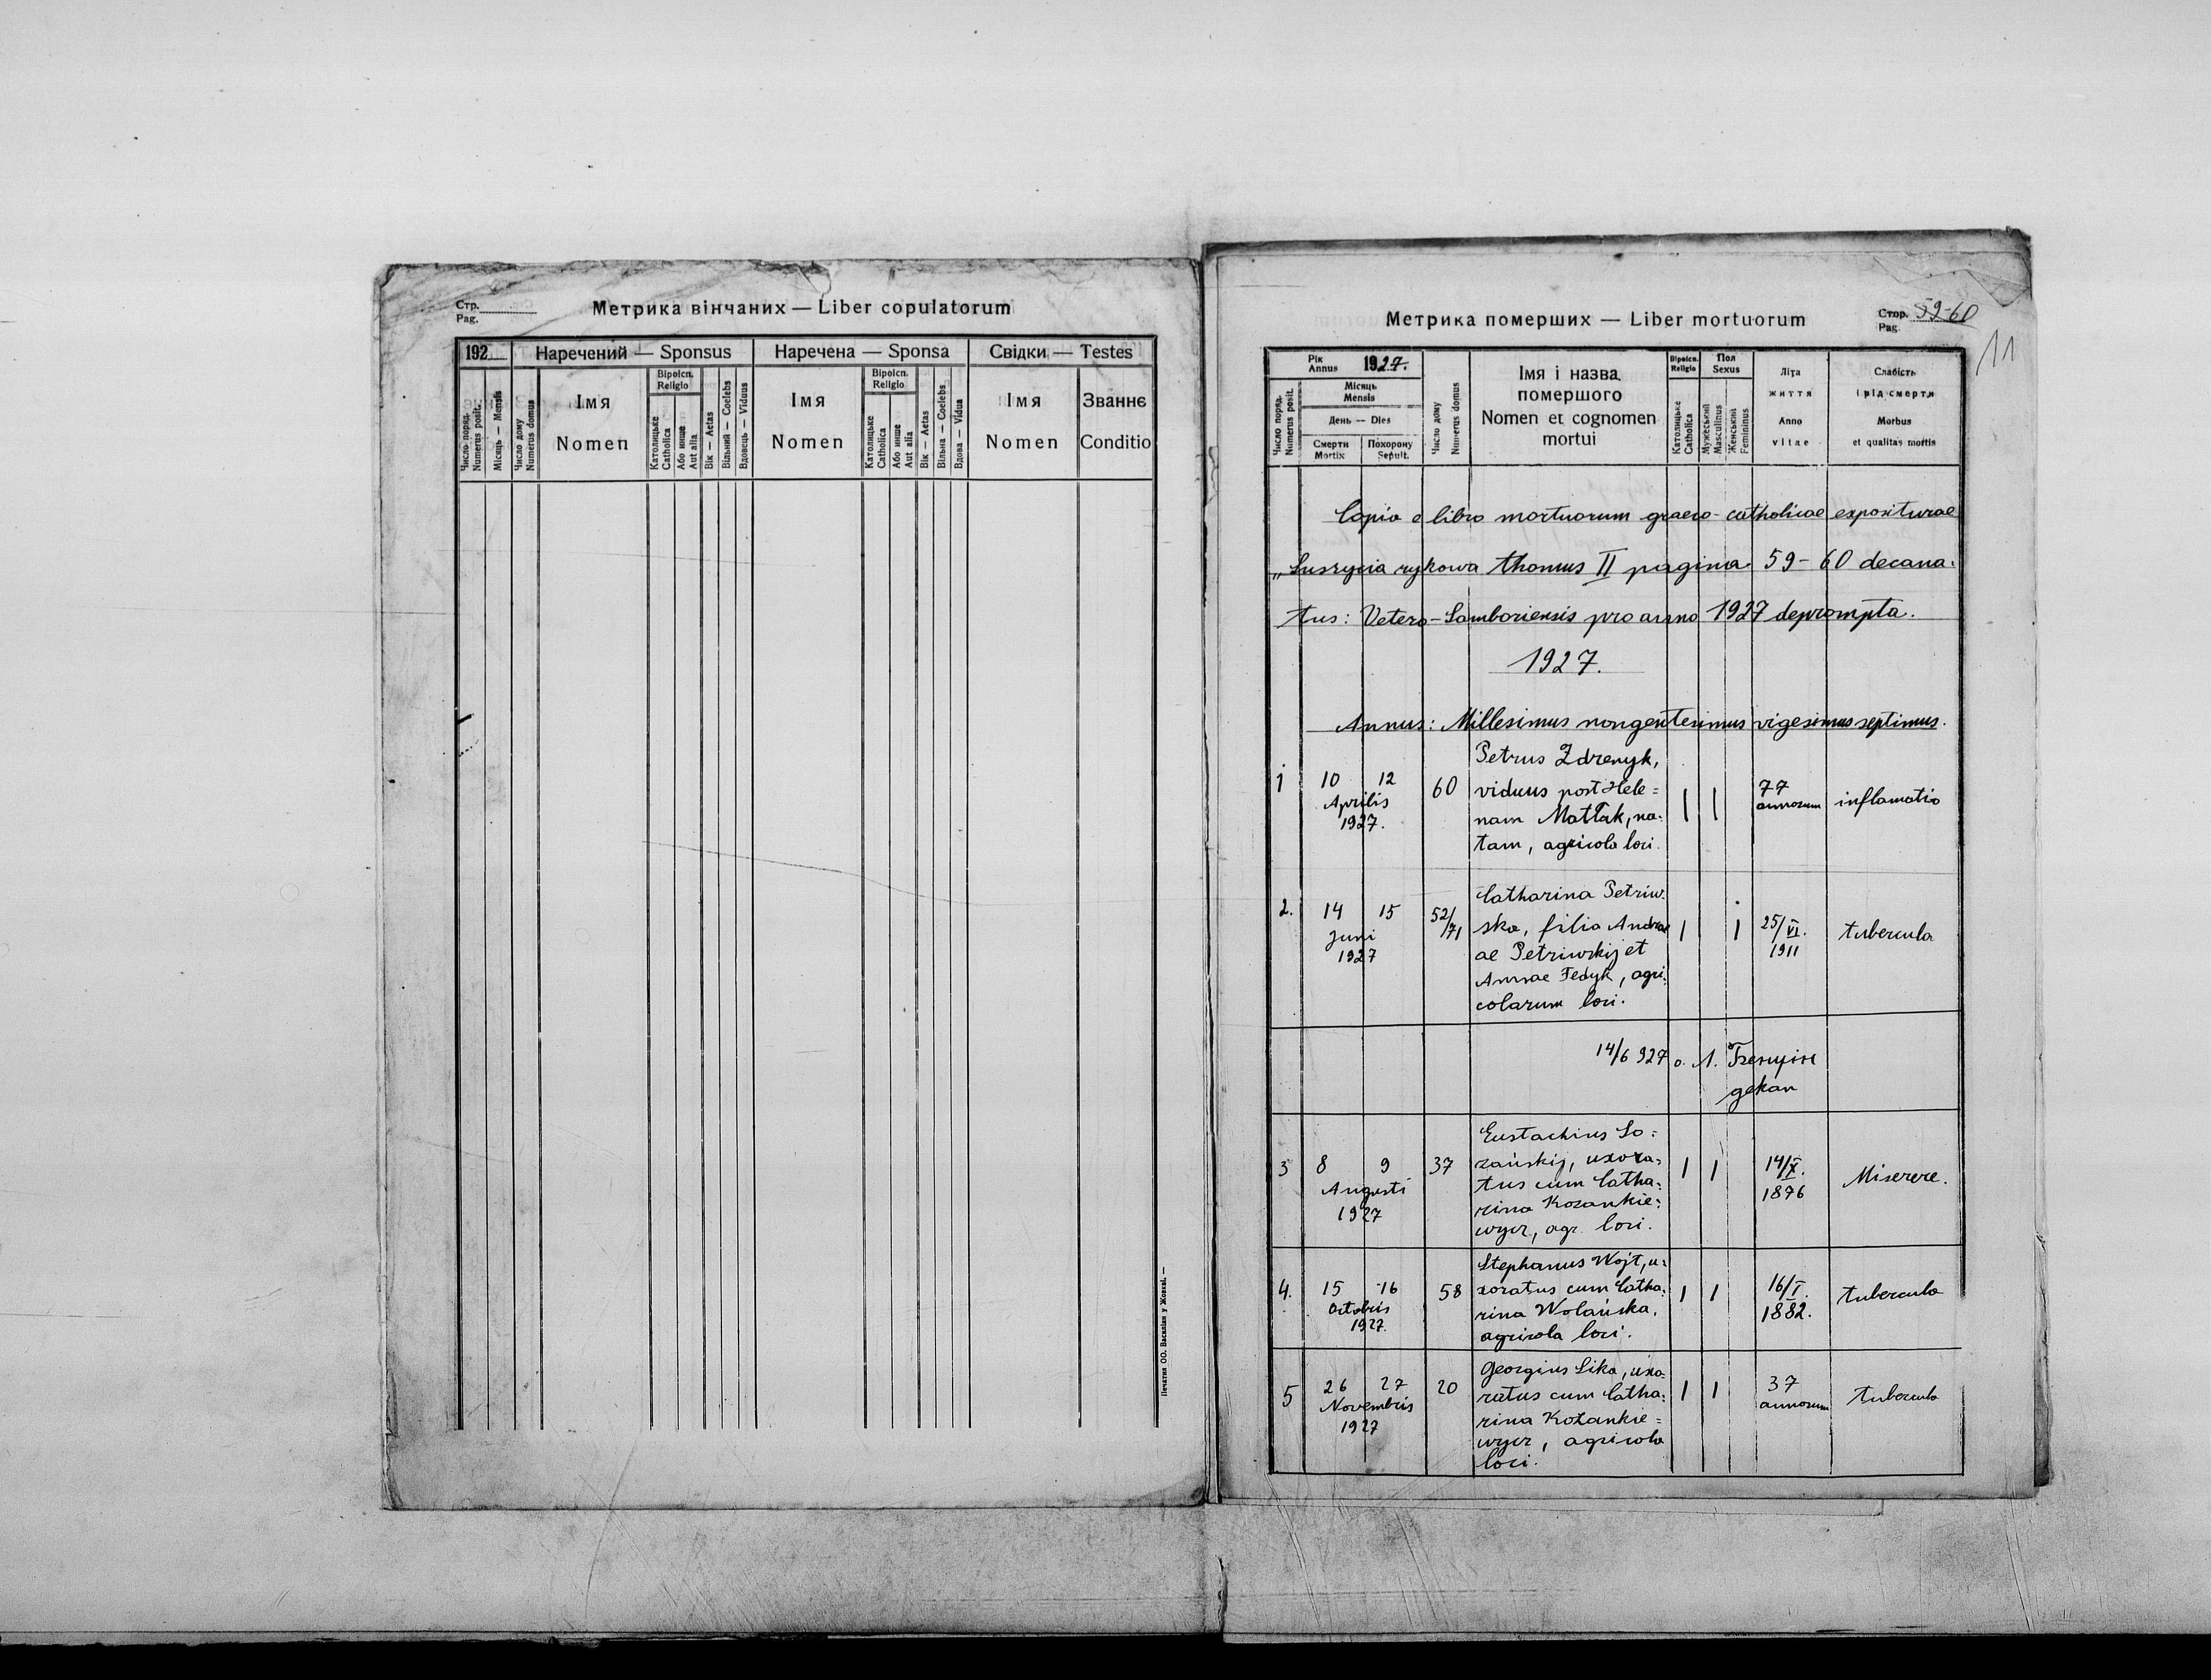 Стр.
Pag.
Метрика вінчаних — Liber copulatorum
192
Наречений — Sponsus
Наречена — Sponsa
Свідки — Testes
Число поряд.
Numerus posit.
Місяць — Mensis
Число дому
Numerus domus
Імя
Nomen
Віроісп.
Religio
Католицьке
Catholica
Або инше
Aut alia
Вік — Aetas
Вільний — Coelebs
Вдовець — Viduus
Імя
Nomen
Віроісп.
Religio
Католицьке
Catholica
Або инше
Aut alia
Вік — Aetas
Вільна — Coelebs
Вдова — Vidua
Імя
Nomen
Званнє
Conditio
Печатня ОО. Василіян у Жовкві. —
Метрика померших — Liber mortuorum
Стор. 59-60
Pag.
11
Рік
Annus 1927.
Число поряд.
Numerus posit.
Місяць
Mensis
День — Dies
Смерти
Mortix
Похорону
Sepult.
Число дому
Numerus domus
Імя і назва
померщого
Nomen et cognomen
mortui
Віроісп.
Religio
Католицьке
Catholica
Пол
Sexus
Мужеський
Masculinus
Женський
Femininus
Літа
життя
Anno
vitae
Слабість
і рід смерти
Morbus
et qualitas mortis
Copia e libro mortuorum graeco-catholicae expositurae
thomus II pagina 59-60 decana:
tus: Vetero-Samboriensis pro anno 1927 deprompta.
1927.
Annus: Millesimus nongentesimus vigesimus septimus.
1 10 12 Aprilis 1927. 60
Petrus Zdrenyk,
viduus post Hele=
nam Matłak, na:
tam, agricola loci.
| | 77 annorum inflamatio
2. 14 15 Juni 1927 52/71
Catharina Petriw:
ska, filia Andre
ae Petriwskij et
Annae Fedyk, agri:
colarum loci.
| | 25/VI. 1911 tubercula
14/6 927 о. Л.
декан
3 8 9 Augusti 1927 37
Eustachius So=
zańskij, uxora:
tus cum Catha:
rina Kozankie:
wycz, agr. loci.
| | 14/X. 1876 Miserere.
4. 15 16 Octobris 1927. 58
Stephanus Wojt, u:
xoratus cum Catha:
rina Wolańska,
agricola loci.
| | 16/I. 1882. tubercula
5 26 27 Novembris 1927 20
Georgius Sika, uxo:
ratus cum Catha:
rina Kożankie=
wycz, agricola
loci.
| | 37 annorum tubercula